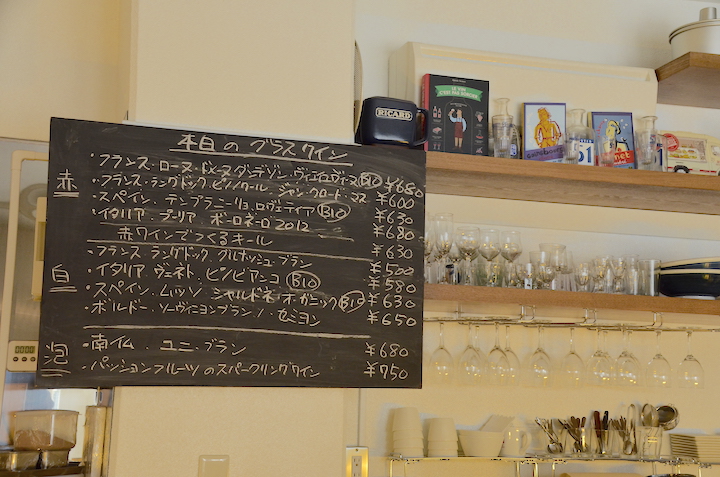 本日の グラスワイン
赤
・フランス・ローヌ・ドメーヌダンデゾン・ヴィエイユヴィーニュ BIO ¥680
・フランス・ラングドック・ピノノワール・ジャン・クロード・マス ¥600
・スペイン・テンプラニーリョ・ロヴェティア BIO ¥630
・イタリア・プーリア ボロネーロ 2012 ¥680
赤ワインでつくるキール ¥630
白
・フランス ラングドック・グルナッシュ・ブラン ¥500
・イタリア・ヴェネト・ピノビアンコ BIO ¥580
・スペイン・ムッソ シャルドネ・オーガニック BIO ¥630
・ボルドー・ソーヴィニヨンブラン / セミヨン ¥650
泡
・南仏 ユニ・ブラン ¥680
・パッションフルーツのスパークリングワイン ¥750
RICARD
51